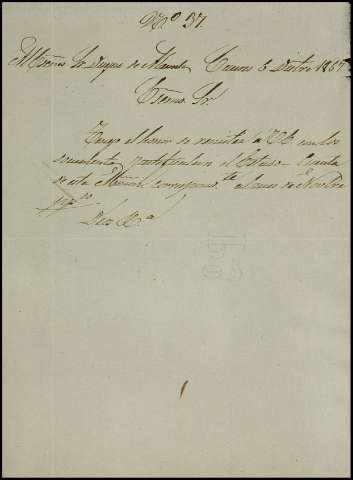 Nº 37.
Al Excmo Sr Duque de 5 Dicbre 1857
Excmo. Sr
Tengo el honor de remitir a V.E. con los
documentos justificativos el Estado Cuenta
de esta correspondte al mes de Novbre
ppdo
Dios &a